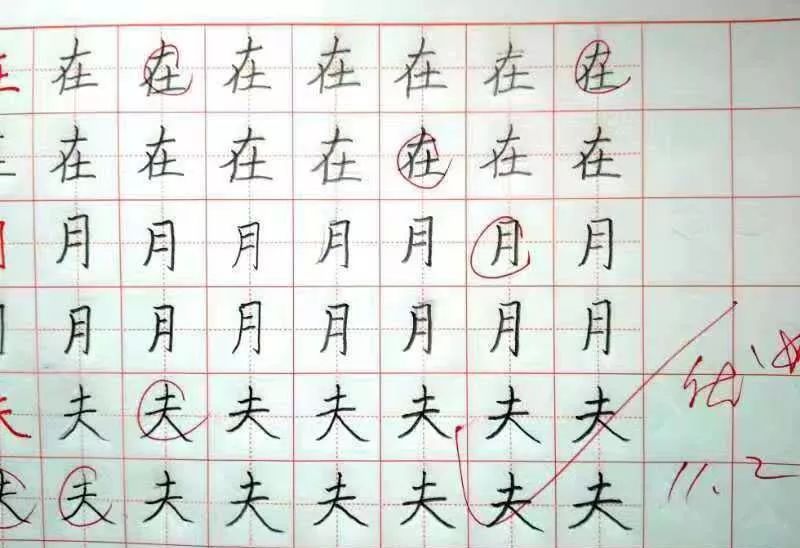 在 在 在 在 在 在 在 在
在 在 在 在 在 在 在
月 月 月 月 月 月 月
月 月 月 月 月 月 月
夫 夫 夫 夫 夫 夫 夫 夫
夫 夫 夫 夫 夫 夫 夫 夫
优
11.2